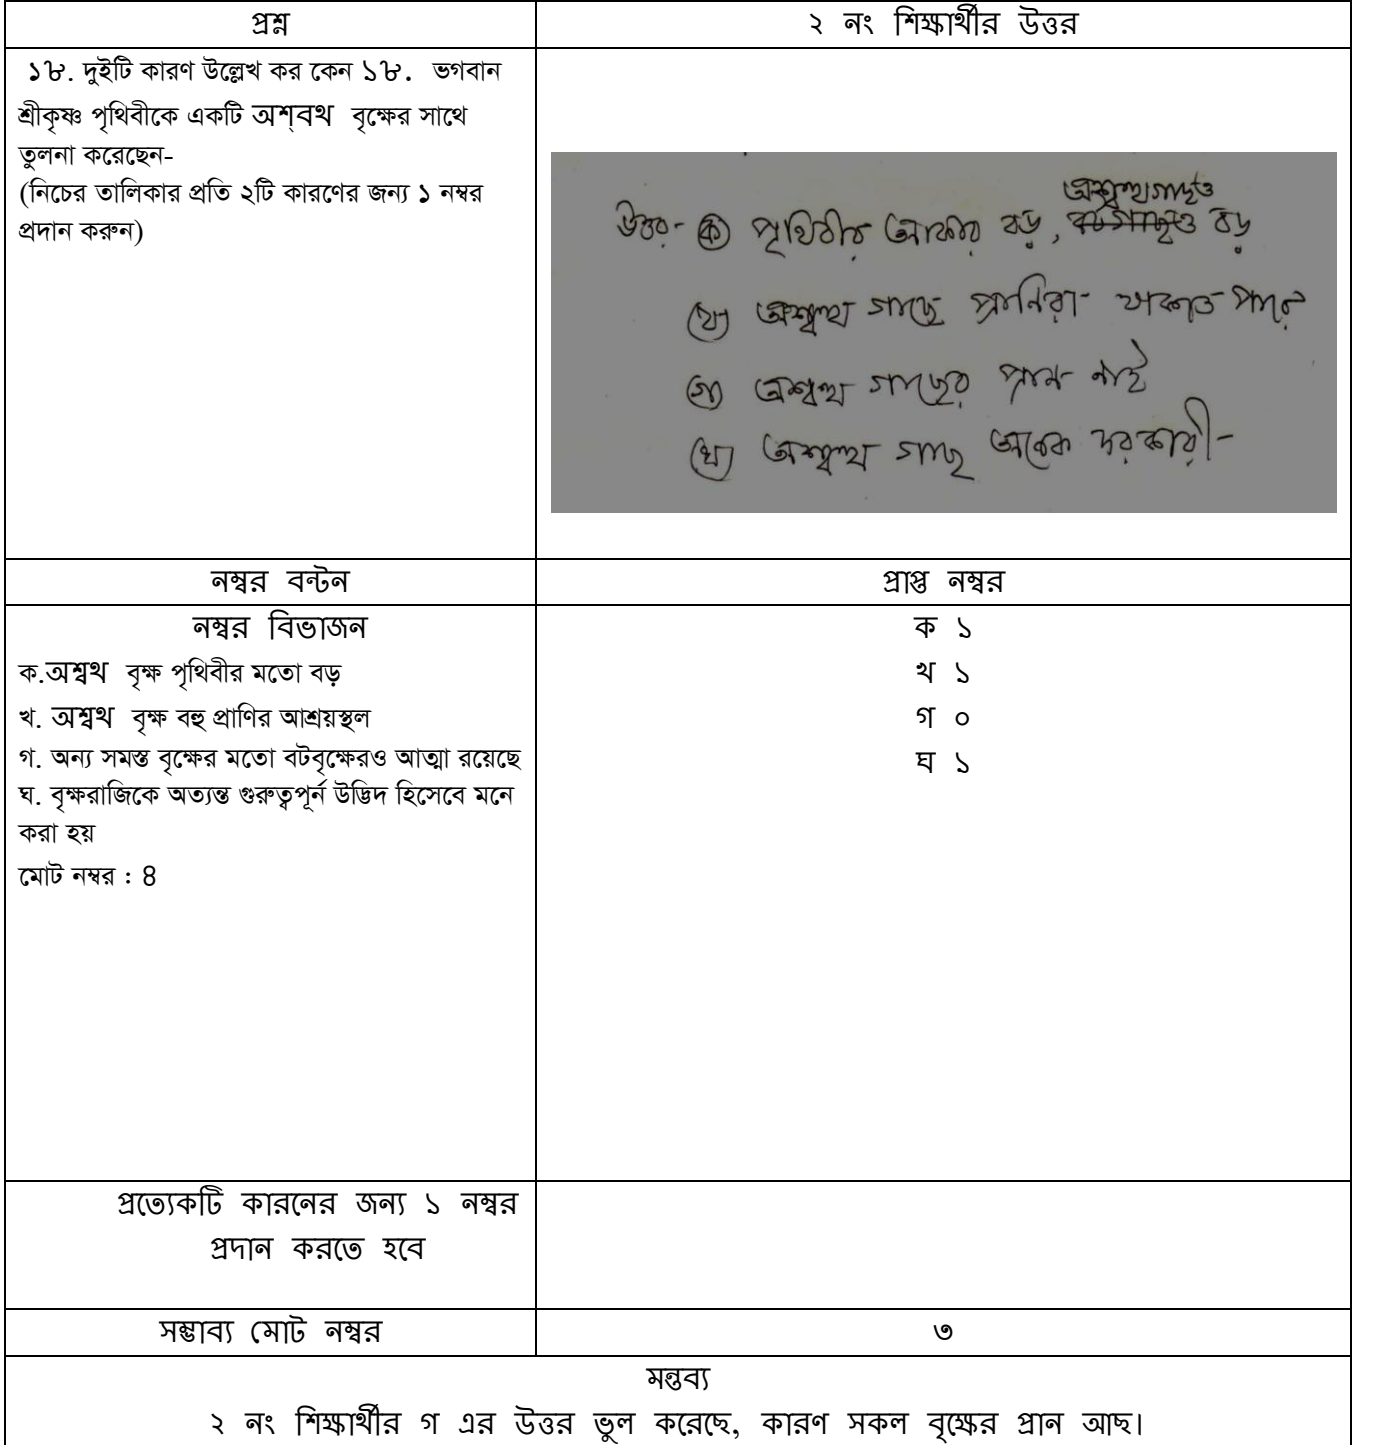 প্রশ্ন
২ নং শিক্ষার্থীর উত্তর
১৮. দুইটি কারণ উল্লেখ কর কেন ১৮. ভগবান
শ্রীকৃষ্ণ পৃথিবীকে একটি অশ্বথ বৃক্ষের সাথে
তুলনা করেছেন-
(নিচের তালিকার প্রতি ২টি কারণের জন্য ১ নম্বর
প্রদান করুন)
অশ্বত্থগাছও
উত্তর- (ক) পৃথিবীর আকার বড়, বটগাছও বড়
(খ) অশ্বত্থ গাছে প্রানিরা থাকতে পারে
(গ) অশ্বত্থ গাছের প্রান নাই
(ঘ) অশ্বত্থ গাছ অনেক দরকারী-
নম্বর বন্টন
প্রাপ্ত নম্বর
নম্বর বিভাজন
ক.অশ্বথ বৃক্ষ পৃথিবীর মতো বড়
খ. অশ্বথ বৃক্ষ বহু প্রাণির আশ্রয়স্থল
গ. অন্য সমস্ত বৃক্ষের মতো বটবৃক্ষেরও আত্মা রয়েছে
ঘ. বৃক্ষরাজিকে অত্যন্ত গুরুত্বপূর্ন উদ্ভিদ হিসেবে মনে
করা হয়
মোট নম্বর : 4
ক ১
খ ১
গ ০
ঘ ১
প্রত্যেকটি কারনের জন্য ১ নম্বর
প্রদান করতে হবে
সম্ভাব্য মোট নম্বর
৩
মন্তব্য
২ নং শিক্ষার্থীর গ এর উত্তর ভুল করেছে, কারণ সকল বৃক্ষের প্রান আছ।